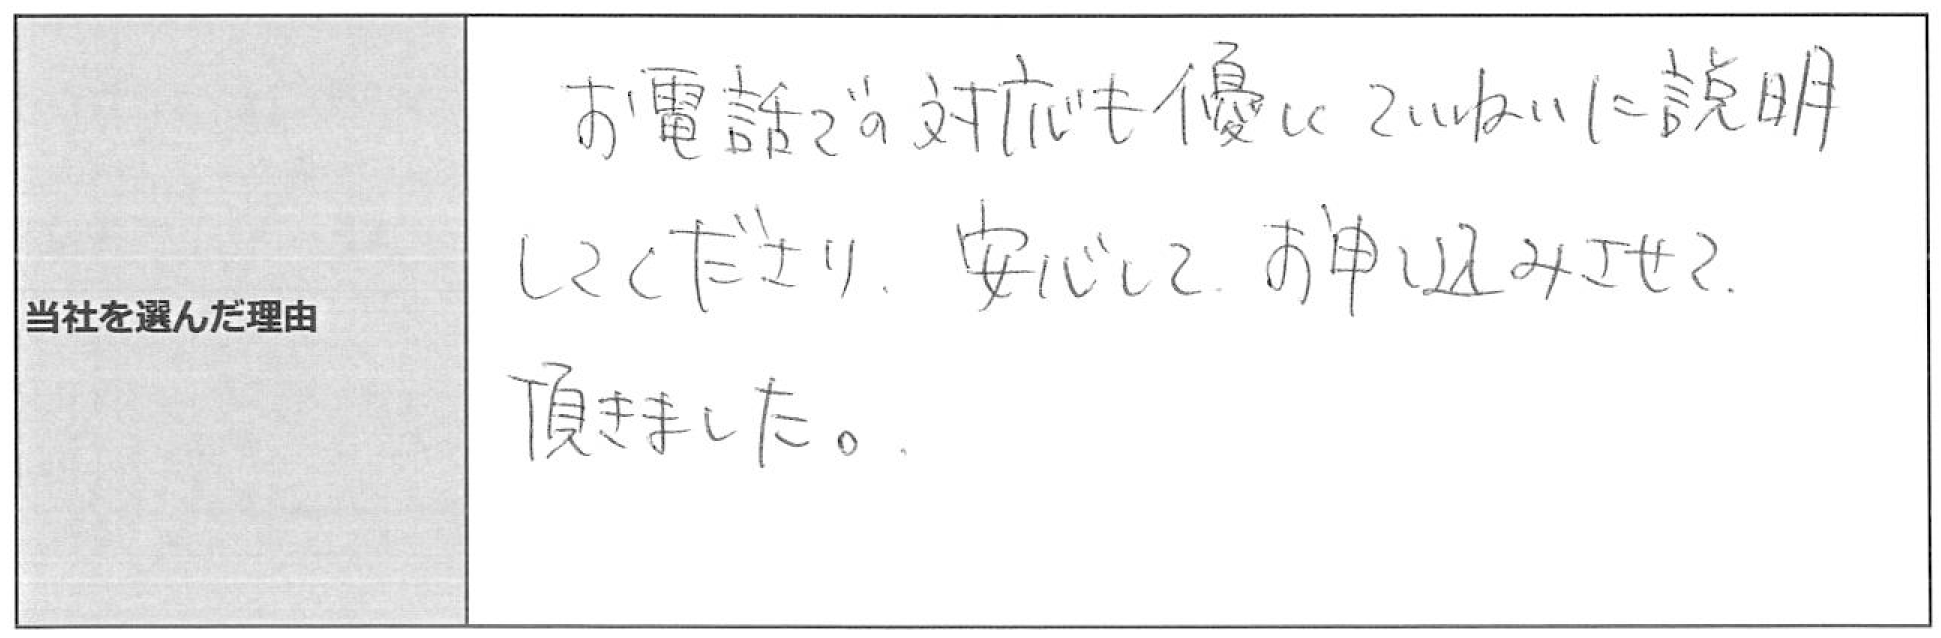 当社を選んだ理由
お電話での対応も優しくていねいに説明
してくださり、安心して、お申し込みさせて
頂きました。